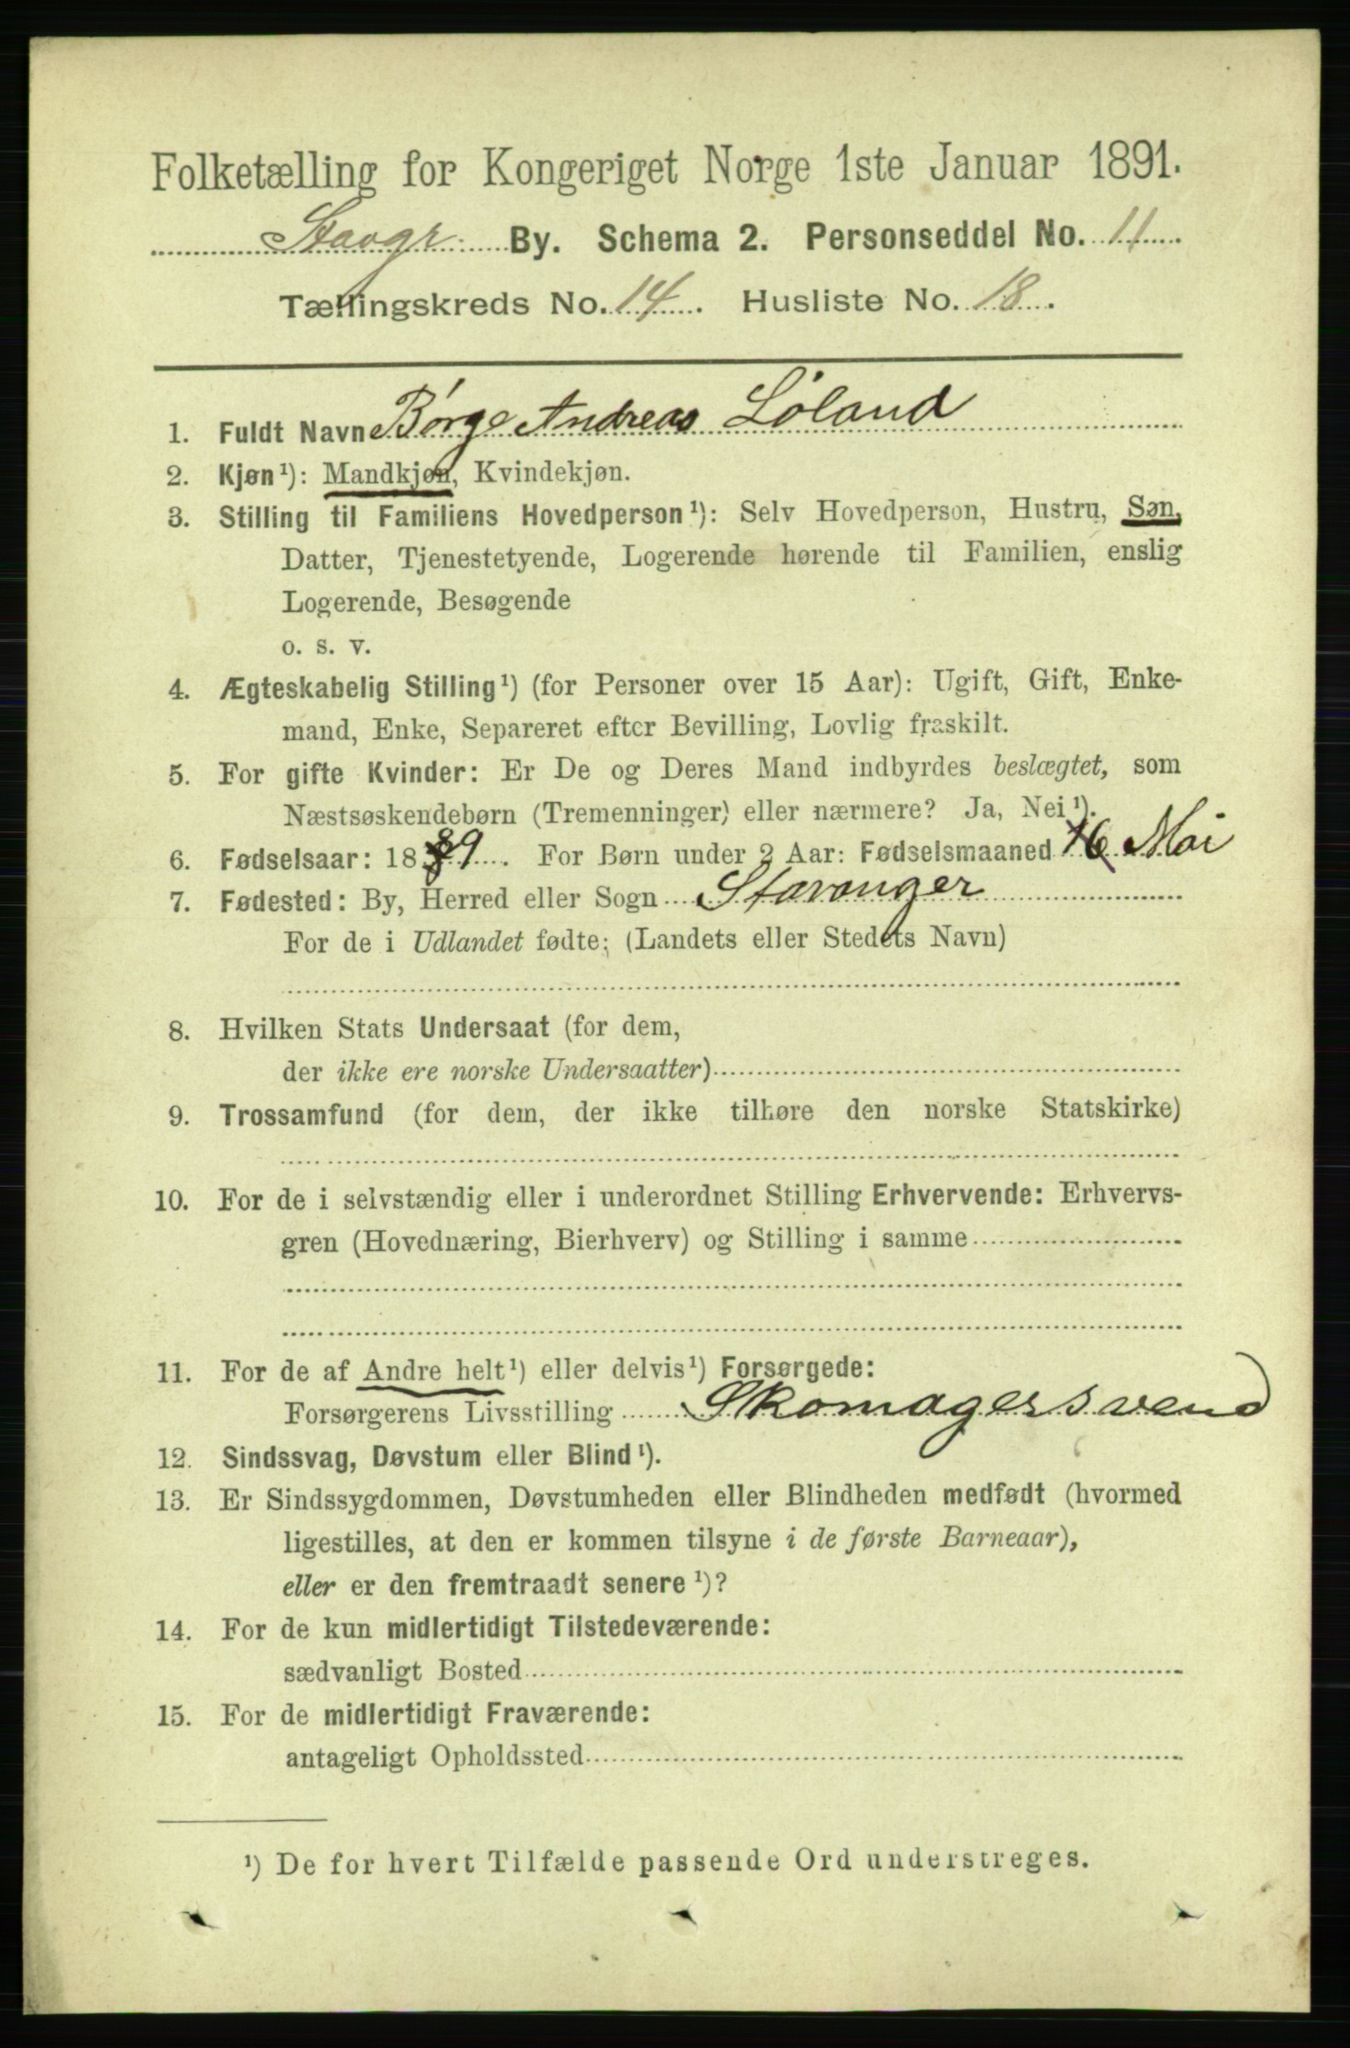 Folketælling for Kongeriget Norge 1ste Januar 1891.
Stavgr. By. Schema 2. Personseddel No. 11
Tællingskreds No. 14. Husliste No. 18.
1. Fuldt Navn Børge Andreas Löland
2. Kjøn¹): Mandkjøn, Kvindekjøn.
3. Stilling til Familiens Hovedperson¹): Selv Hovedperson, Hustru, Søn,
Datter, Tjenestetyende, Logerende hørende til Familien, enslig
Logerende, Besøgende
o. s. v.
4. Ægteskabelig Stilling¹) (for Personer over 15 Aar): Ugift, Gift, Enke-
mand, Enke, Separeret efter Bevilling, Lovlig fraskilt.
5. For gifte Kvinder: Er De og Deres Mand indbyrdes beslægtet, som
Næstsøskendebørn (Tremenninger) eller nærmere? Ja, Nei¹).
6. Fødselsaar: 1889. For Børn under 2 Aar: Fødselsmaaned 16 Mai
7. Fødested: By, Herred eller Sogn Stavanger
For de i Udlandet fødte: (Landets eller Stedets Navn)
8. Hvilken Stats Undersaat (for dem,
der ikke ere norske Undersaatter)
9. Trossamfund (for dem, der ikke tilhøre den norske Statskirke)
10. For de i selvstændig eller i underordnet Stilling Erhvervende: Erhvervs-
gren (Hovednæring, Bierhverv) og Stilling i samme
11. For de af Andre helt¹) eller delvis¹) Forsørgede:
Forsørgerens Livsstilling Skomagersvend
12. Sindssvag, Døvstum eller Blind¹).
13. Er Sindssygdommen, Døvstumheden eller Blindheden medfødt (hvormed
ligestilles, at den er kommen tilsyne i de første Barneaar),
eller er den fremtraadt senere¹)?
14. For de kun midlertidigt Tilstedeværende:
sædvanligt Bosted
15. For de midlertidigt Fraværende:
antageligt Opholdssted
¹) De for hvert Tilfælde passende Ord understreges.